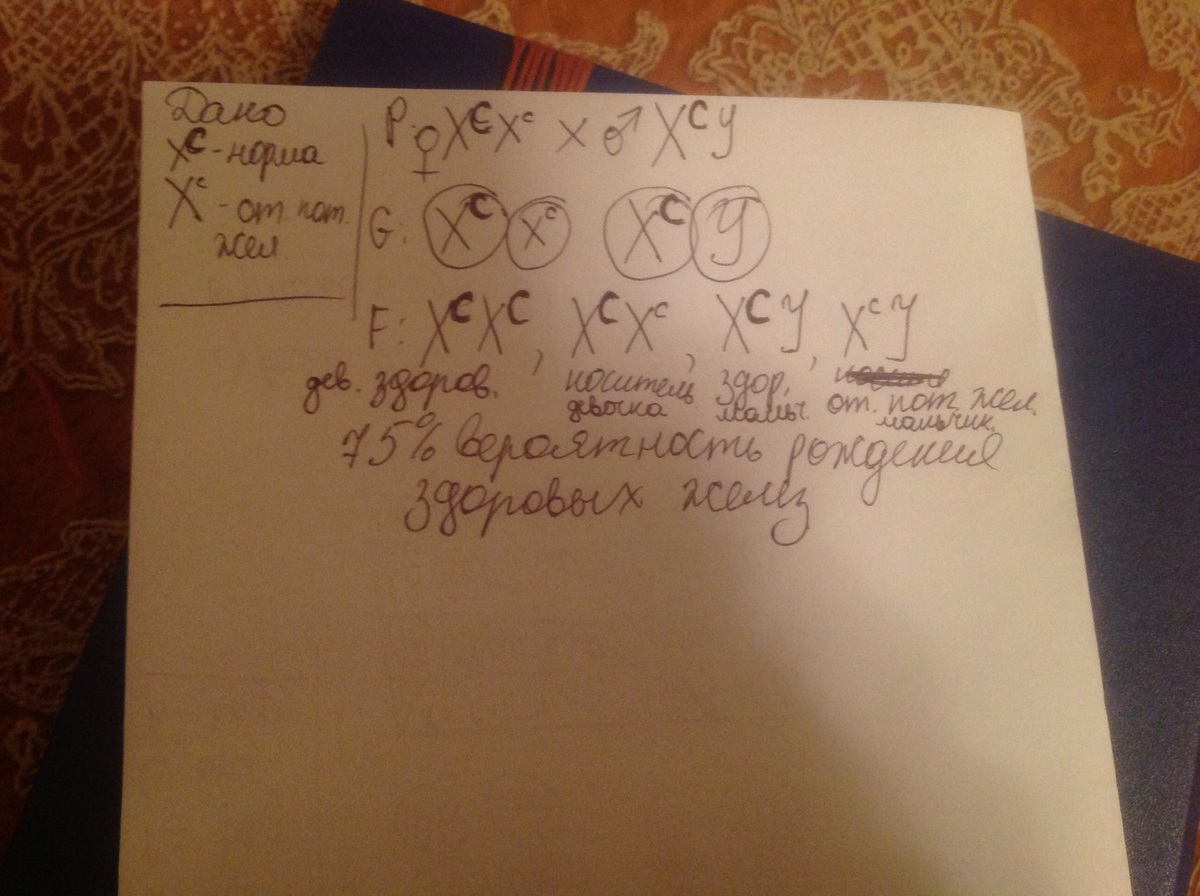 Дано
X^C - норма
X^c - от. пот. жел.
P: ♀ X^C X^c × ♂ X^C У
G: X^C X^c X^C У
F: X^C X^C, X^C X^c, X^C У, X^c У
дев. здоров. носитель девочка здор. мальч. от. пот. жел. мальчик.
75% вероятность рождения
здоровых желез